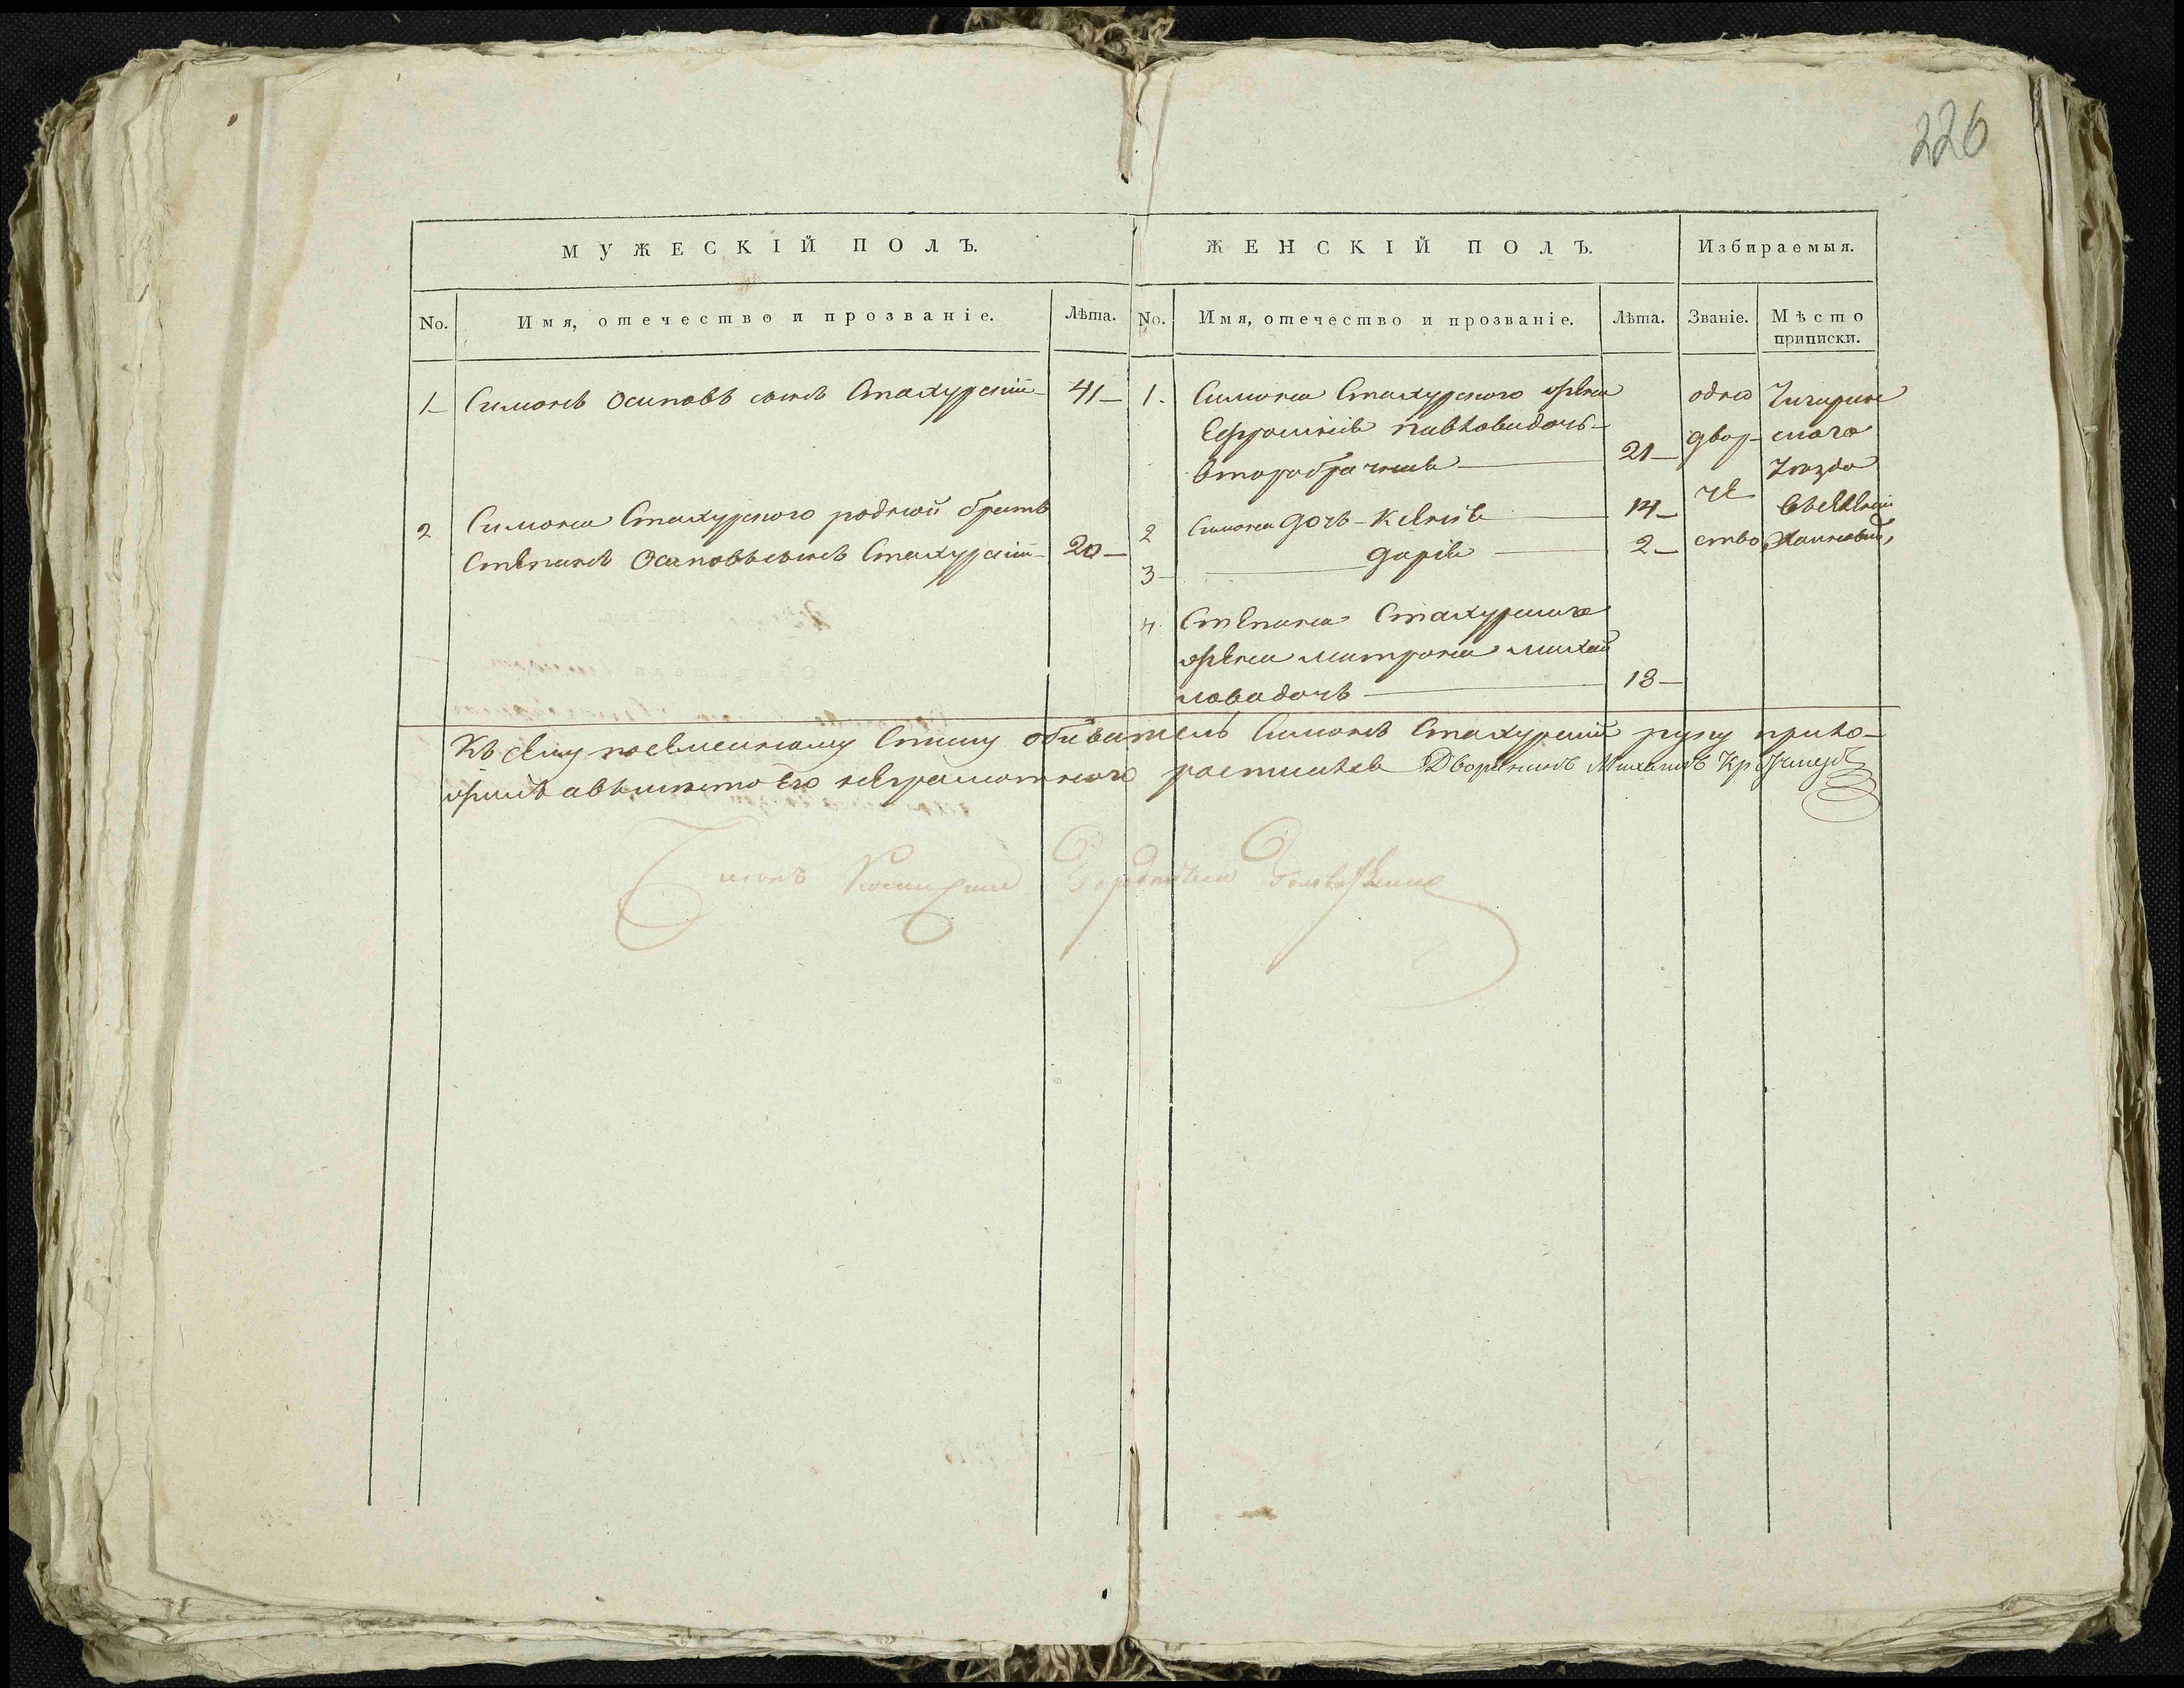 226
МУЖЕСКІЙ ПОЛЪ.
ЖЕНСКІЙ ПОЛЪ.
Избираемыя.
No.
Имя, отечество и прозваніе.
Лѣта.
No.
Имя, отечество и прозваніе.
Лѣта.
Званіе.
Мѣсто
приписки.
1
Симонъ Осиповъ сынъ Стахурскій
41
2
Симона Стахурского родной братъ
Степанъ Осиповъ сынъ Стахурскій
20
1.
Симона Стахурского жена
Ефросинія Павлова дочь
второбрачная
21
2
Симона дочь Ксенія
14
3
дарія
2
4
Степана Стахурского
жена Матрона Михай
лова дочь
18
одно
двор
че
ство
Чигирин
ского
уезда
Къ сему посемейному списку обыватель Симонъ Стахурскій руку прило
жилъ а вместо его неграмотного росписался Дворянинъ Михаилъ